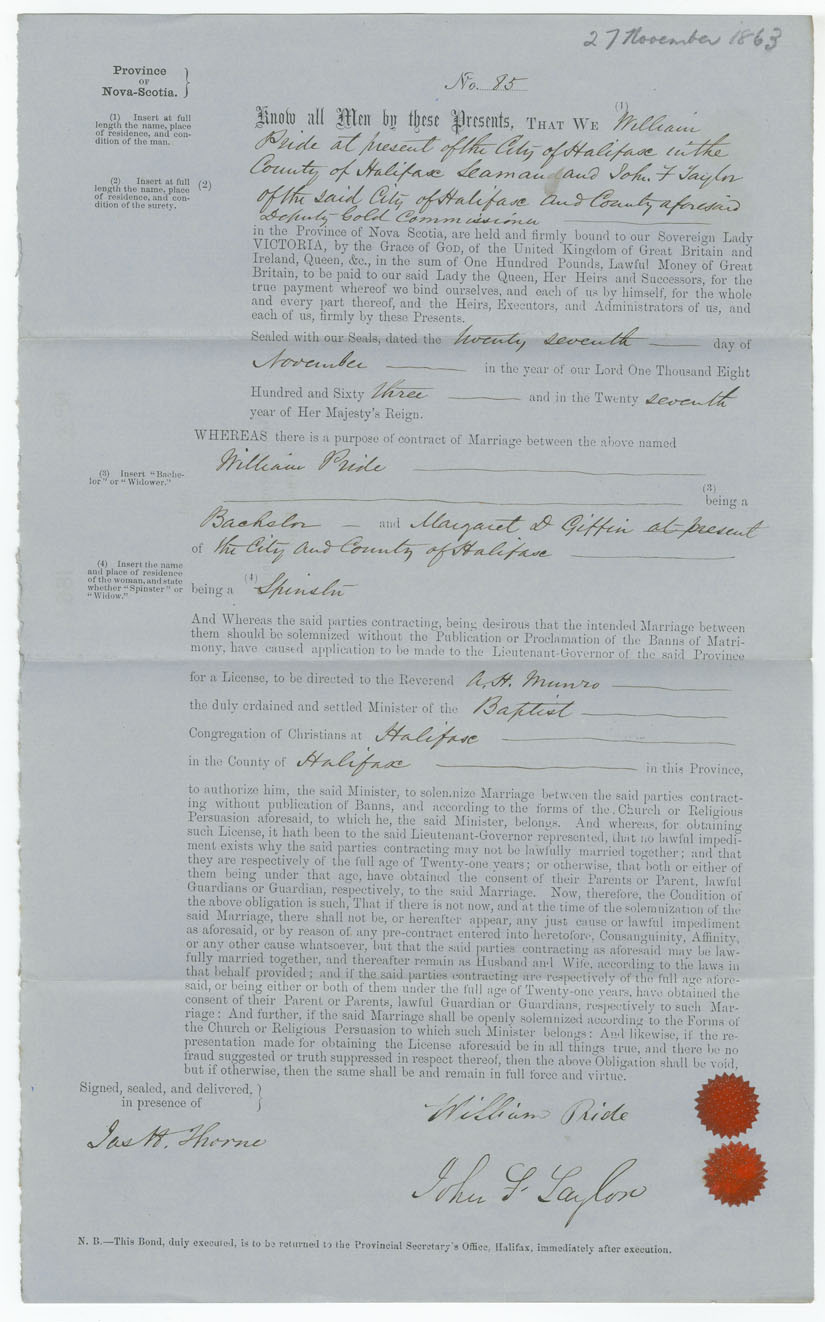 27 November 1863
Province
OF
Nova-Scotia. }
No. 85
(1) Insert at full
length the name, place
of residence, and con-
dition of the man.
(1)
Know all Men by these Presents, THAT WE William
Pride at present of the City of Halifax in the
County of Halifax Seaman and John F Taylor
(2) Insert at full
length the name, place
of residence, and con-
dition of the surety.
(2)
of the said City of Halifax and County aforesaid
Deputy Gold Commissioner
in the Province of Nova Scotia, are held and firmly bound to our Sovereign Lady
VICTORIA, by the Grace of GOD, of the United Kingdom of Great Britain and
Ireland, Queen, &c., in the sum of One Hundred Pounds, Lawful Money of Great
Britain, to be paid to our said Lady the Queen, Her Heirs and Successors, for the
true payment whereof we bind ourselves, and each of us by himself, for the whole
and every part thereof, and the Heirs, Executors, and Administrators of us, and
each of us, firmly by these Presents.
Sealed with our Seals, dated the twenty seventh day of
November in the year of our Lord One Thousand Eight
Hundred and Sixty three and in the Twenty seventh
year of Her Majesty's Reign.
WHEREAS there is a purpose of contract of Marriage between the above named
William Pride
(3) Insert "Bache-
lor" or "Widower."
(3)
being a
Bachelor and Margaret D Giffin at present
of the City and County of Halifax
(4) Insert the name
and place of residence
of the woman, and state
whether "Spinster" or
"Widow."
being a (4) Spinster
And Whereas the said parties contracting, being desirous that the intended Marriage between
them should be solemnized without the Publication or Proclamation of the Banns of Matri-
mony, have caused application to be made to the Lieutenant-Governor of the said Province
for a License, to be directed to the Reverend A. H. Munro
the duly ordained and settled Minister of the Baptist
Congregation of Christians at Halifax
in the County of Halifax in this Province,
to authorize him, the said Minister, to solemnize Marriage between the said parties contract-
ing without publication of Banns, and according to the forms of the Church or Religious
Persuasion aforesaid, to which he, the said Minister, belongs. And whereas, for obtaining
such License, it hath been to the said Lieutenant-Governor represented, that no lawful impedi-
ment exists why the said parties contracting may not be lawfully married together; and that
they are respectively of the full age of Twenty-one years; or otherwise, that both or either of
them being under that age, have obtained the consent of their Parents or Parent, lawful
Guardians or Guardian, respectively, to the said Marriage. Now, therefore, the Condition of
the above obligation is such, That if there is not now, and at the time of the solemnization of the
said Marriage, there shall not be, or hereafter appear, any just cause or lawful impediment
as aforesaid, or by reason of any pre-contract entered into heretofore, Consanguinity, Affinity,
or any other cause whatsoever, but that the said parties contracting as aforesaid may be law-
fully married together, and thereafter remain as Husband and Wife, according to the laws in
that behalf provided; and if the said parties contracting are respectively of the full age afore-
said, or being either or both of them under the full age of Twenty-one years, have obtained the
consent of their Parent or Parents, lawful Guardian or Guardians, respectively to such Mar-
riage: And further, if the said Marriage shall be openly solemnized according to the Forms of
the Church or Religious Persuasion to which such Minister belongs: And likewise, if the re-
presentation made for obtaining the License aforesaid be in all things true, and there be no
fraud suggested or truth suppressed in respect thereof, then the above Obligation shall be void,
but if otherwise, then the same shall be and remain in full force and virtue.
Signed, sealed, and delivered, }
in presence of
William Pride
Jas H. Thorne
John F Taylor
N. B.—This Bond, duly executed, is to be returned to the Provincial Secretary's Office, Halifax, immediately after execution.